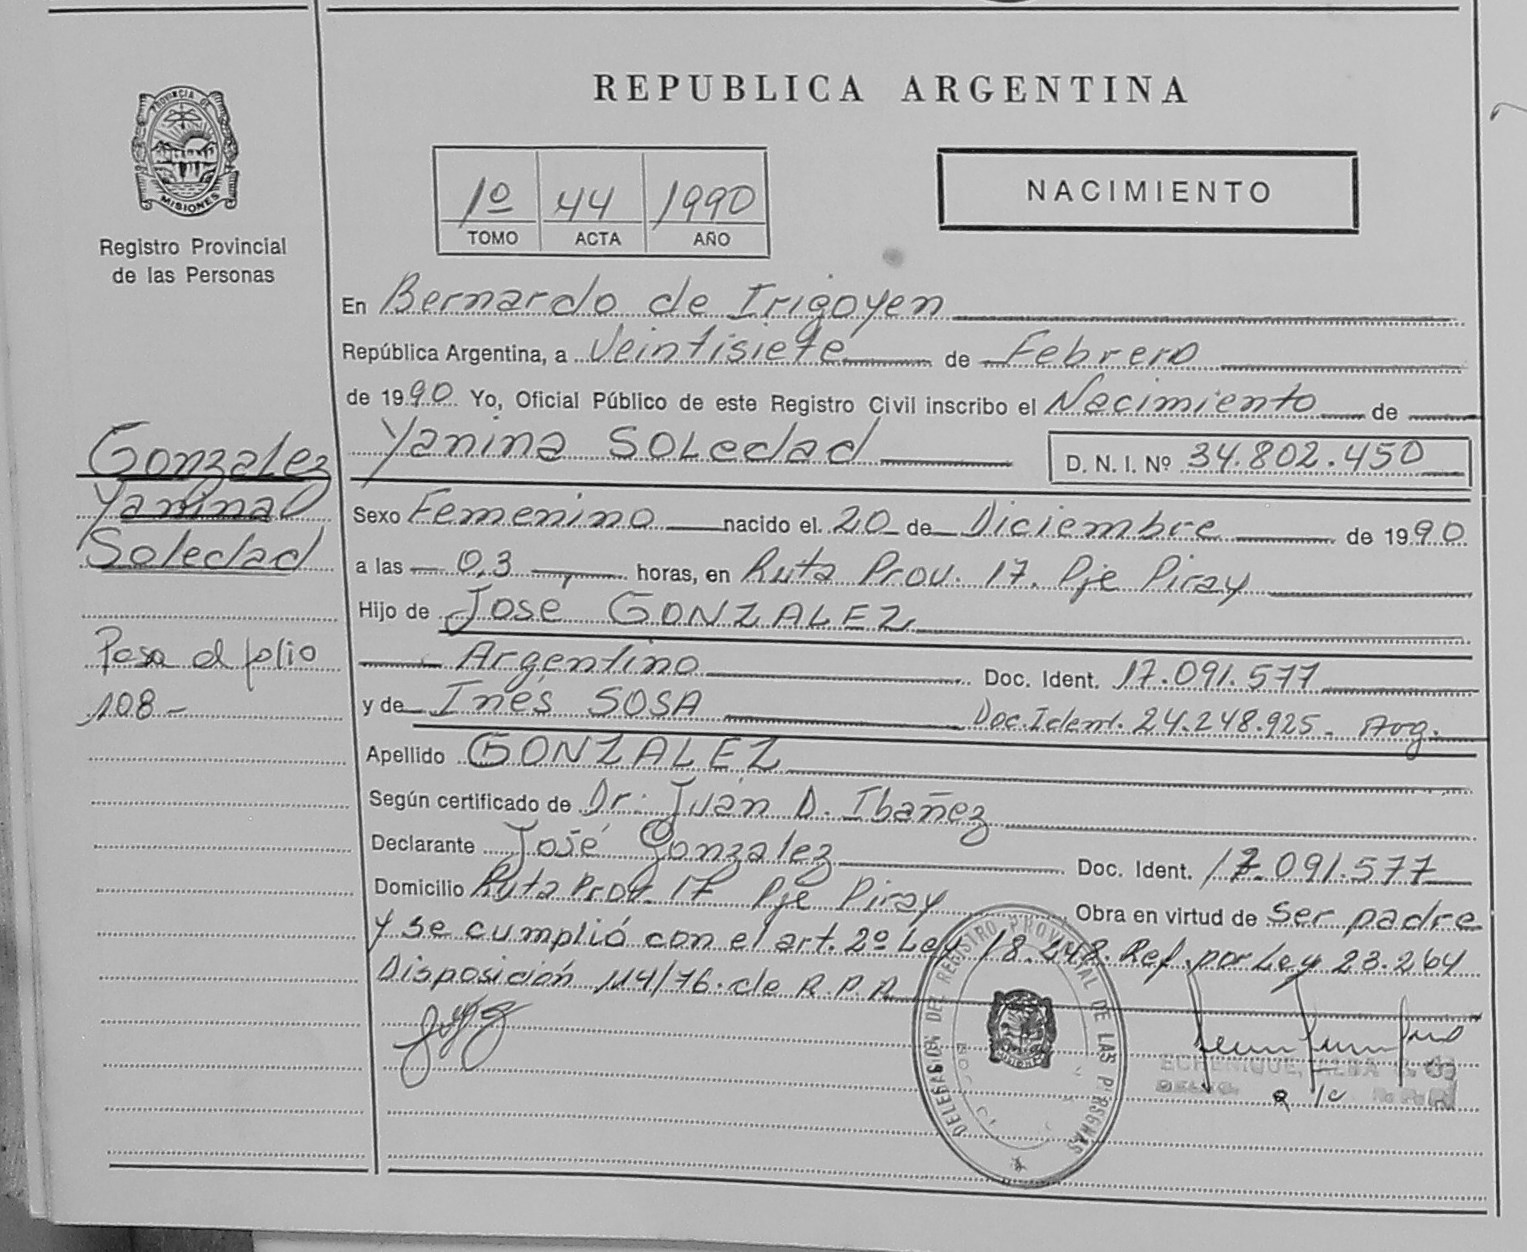 REPUBLICA ARGENTINA
PROVINCIA DE
MISIONES
Registro Provincial
de las Personas
1º 44 1990
TOMO ACTA AÑO
NACIMIENTO
En Bernardo de Irigoyen
República Argentina, a Veintisiete de Febrero
de 1990 Yo, Oficial Público de este Registro Civil inscribo el Nacimiento de
Gonzalez
Yanina
Soledad
Pasa al folio
108-
Yanina SOLedad D. N. I. Nº 34.802.450
Sexo Femenino nacido el 20 de Diciembre de 1990
a las 0,3 horas, en Ruta Prov. 17. Pje Piray
Hijo de José GONZALEZ
Argentino Doc. Ident. 17.091.577
y de Inés SOSA Doc. Ident. 24.248.925 - Arg.
Apellido GONZALEZ
Según certificado de Dr. Juan D. Ibañez
Declarante José Gonzalez Doc. Ident. 17.091.577
Domicilio Ruta Prov. 17 Pje Piray Obra en virtud de Ser padre
y se cumplió con el art. 2º Ley 18.248. Ref. por Ley 23.264
Disposición 114/76. de R.P.P.
DELEGACION DEL REGISTRO PROVINCIAL DE LAS PERSONAS
ECHENIQUE, ALBA